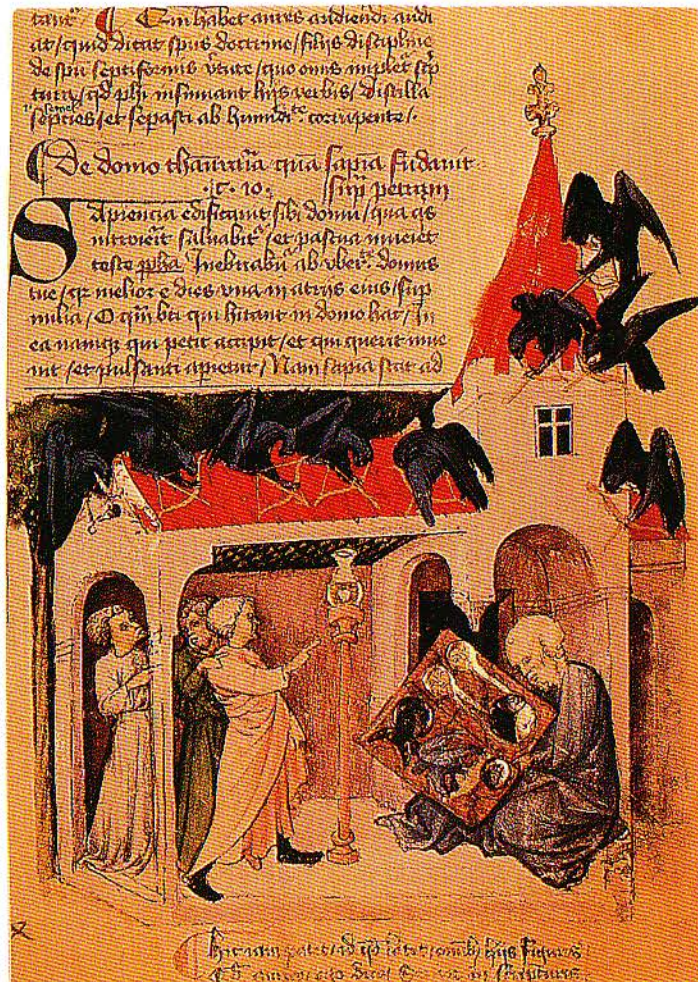 tant~ ¶ Qui habet aures audiendi audi
at / quid dicat spūs doctrine / filijs discipline
de spū septiformis v̄tute / quo omīs implet~ sc̄p
tura / qd phi insinuant hijs verbis / distilla
semel
septies / et sepasti ab humidte corrūpente /.
¶ De domo thesauraria quā sapīa fūdauit
.c. 10. supra petram
Sapiencia edificauit sibi domū / quā qs
introierit saluabit~ / et pascua inueiet
teste ppha Inebriabūt~ ab vbertte domus
tue / qr melior ē dies vna in atrijs eius / sup
milia / O qm bti qui hitant in domo hac / In
ea namqz qui petit accipit / et qui querit inue
nit / et pulsanti apietur / Nam sapīa stat ad